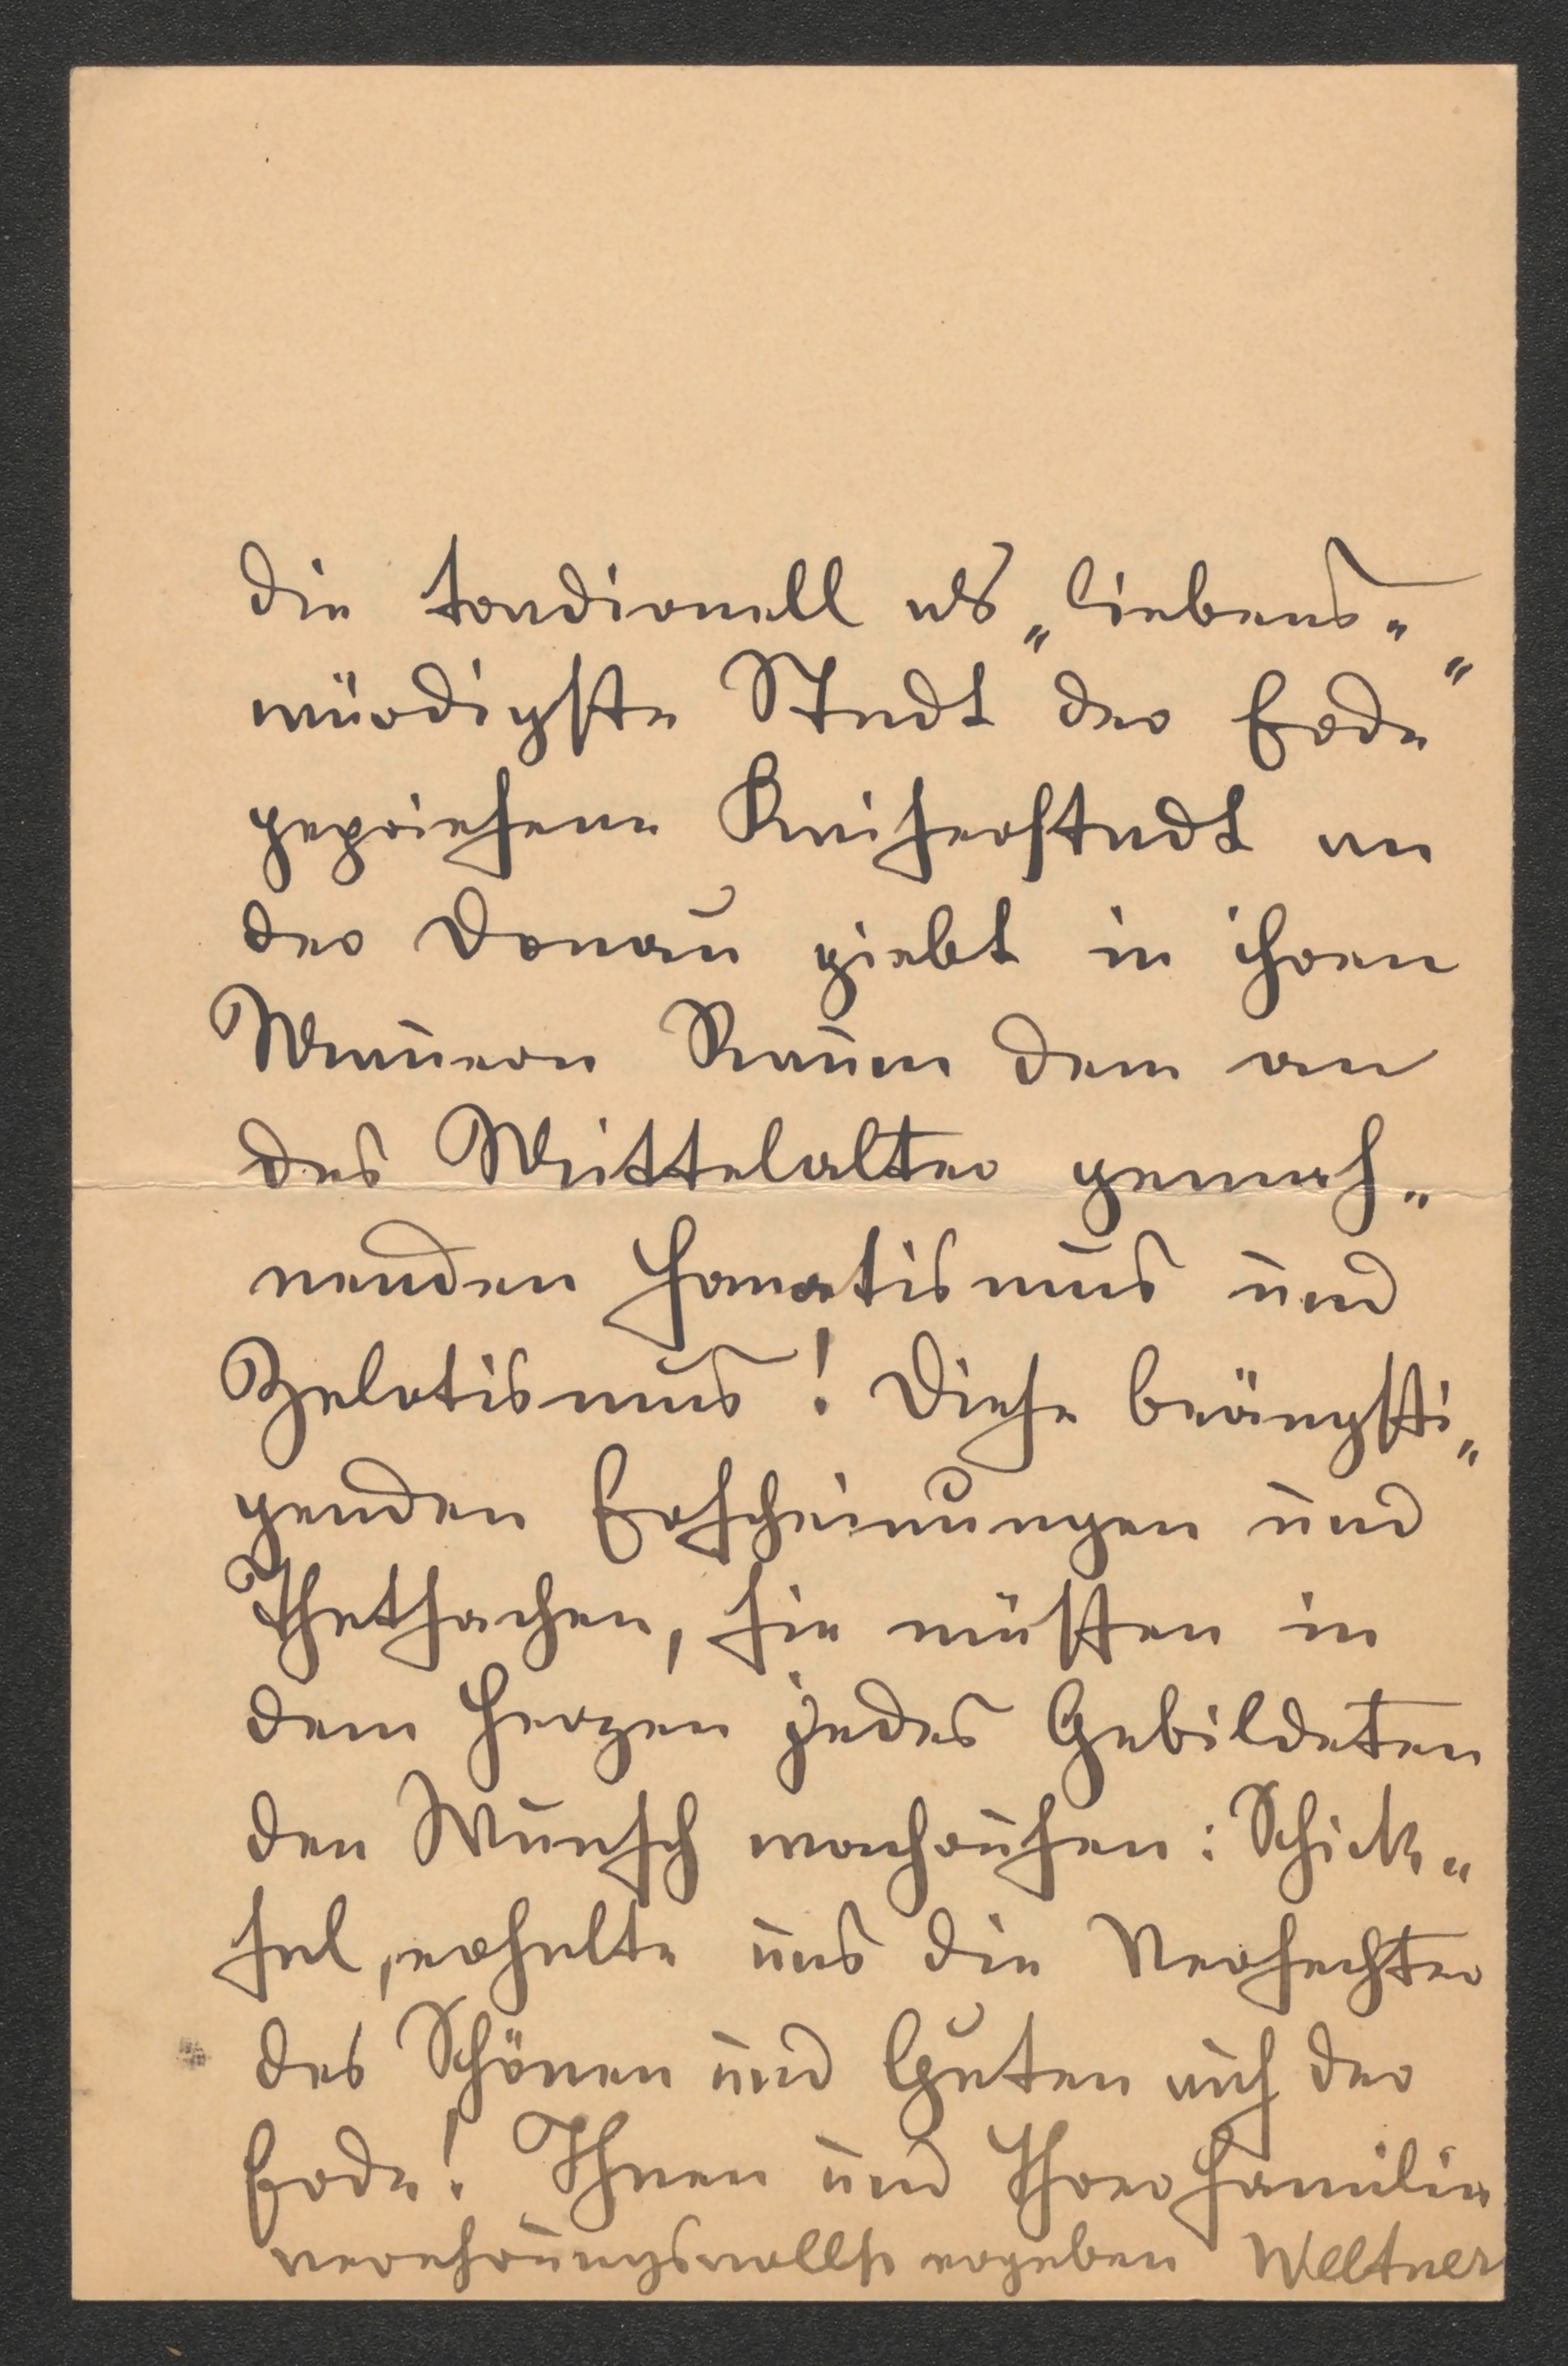 die tradionell als „liebens-
würdigste Stadt der Erde"
gepriesene Kaiserstadt an
der Donau giebt in ihren
Mauern Raum dem an
des Mittelalter gemah-
nenden Fanatismus und
Zelotismus! Diese beängsti-
genden Erscheinungen und
Thatsachen, sie müssen in
dem Herzen jedes Gebildeten
den Wunsch wachrufen: Schick-
sal, erhalte uns die Verfechter
des Schönen und Guten auf der
Erde! Ihnen und Ihrer Familie
verehrungsvollst ergeben Weltner